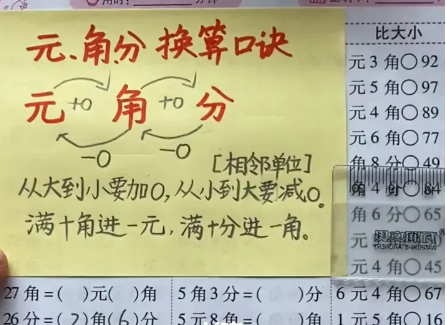 元、角、分 换算口诀
元 +0 角 +0 分
-0 -0
[相邻单位]
从大到小要加0,从小到大要减0。
满十角进一元,满十分进一角。
比大小
元 3 角○92
元 5 角○97
元 4 角○89
元 6 角○77
角 8 分○49
角 4 分○84
角 6 分○65
元
元 4 角○45
27 角=( )元( )角
5 角 3 分=( )分
6 元 4 角○67
26 分=(2)角(6)分
5 元 8 角=( )角
1 元 5 角○16